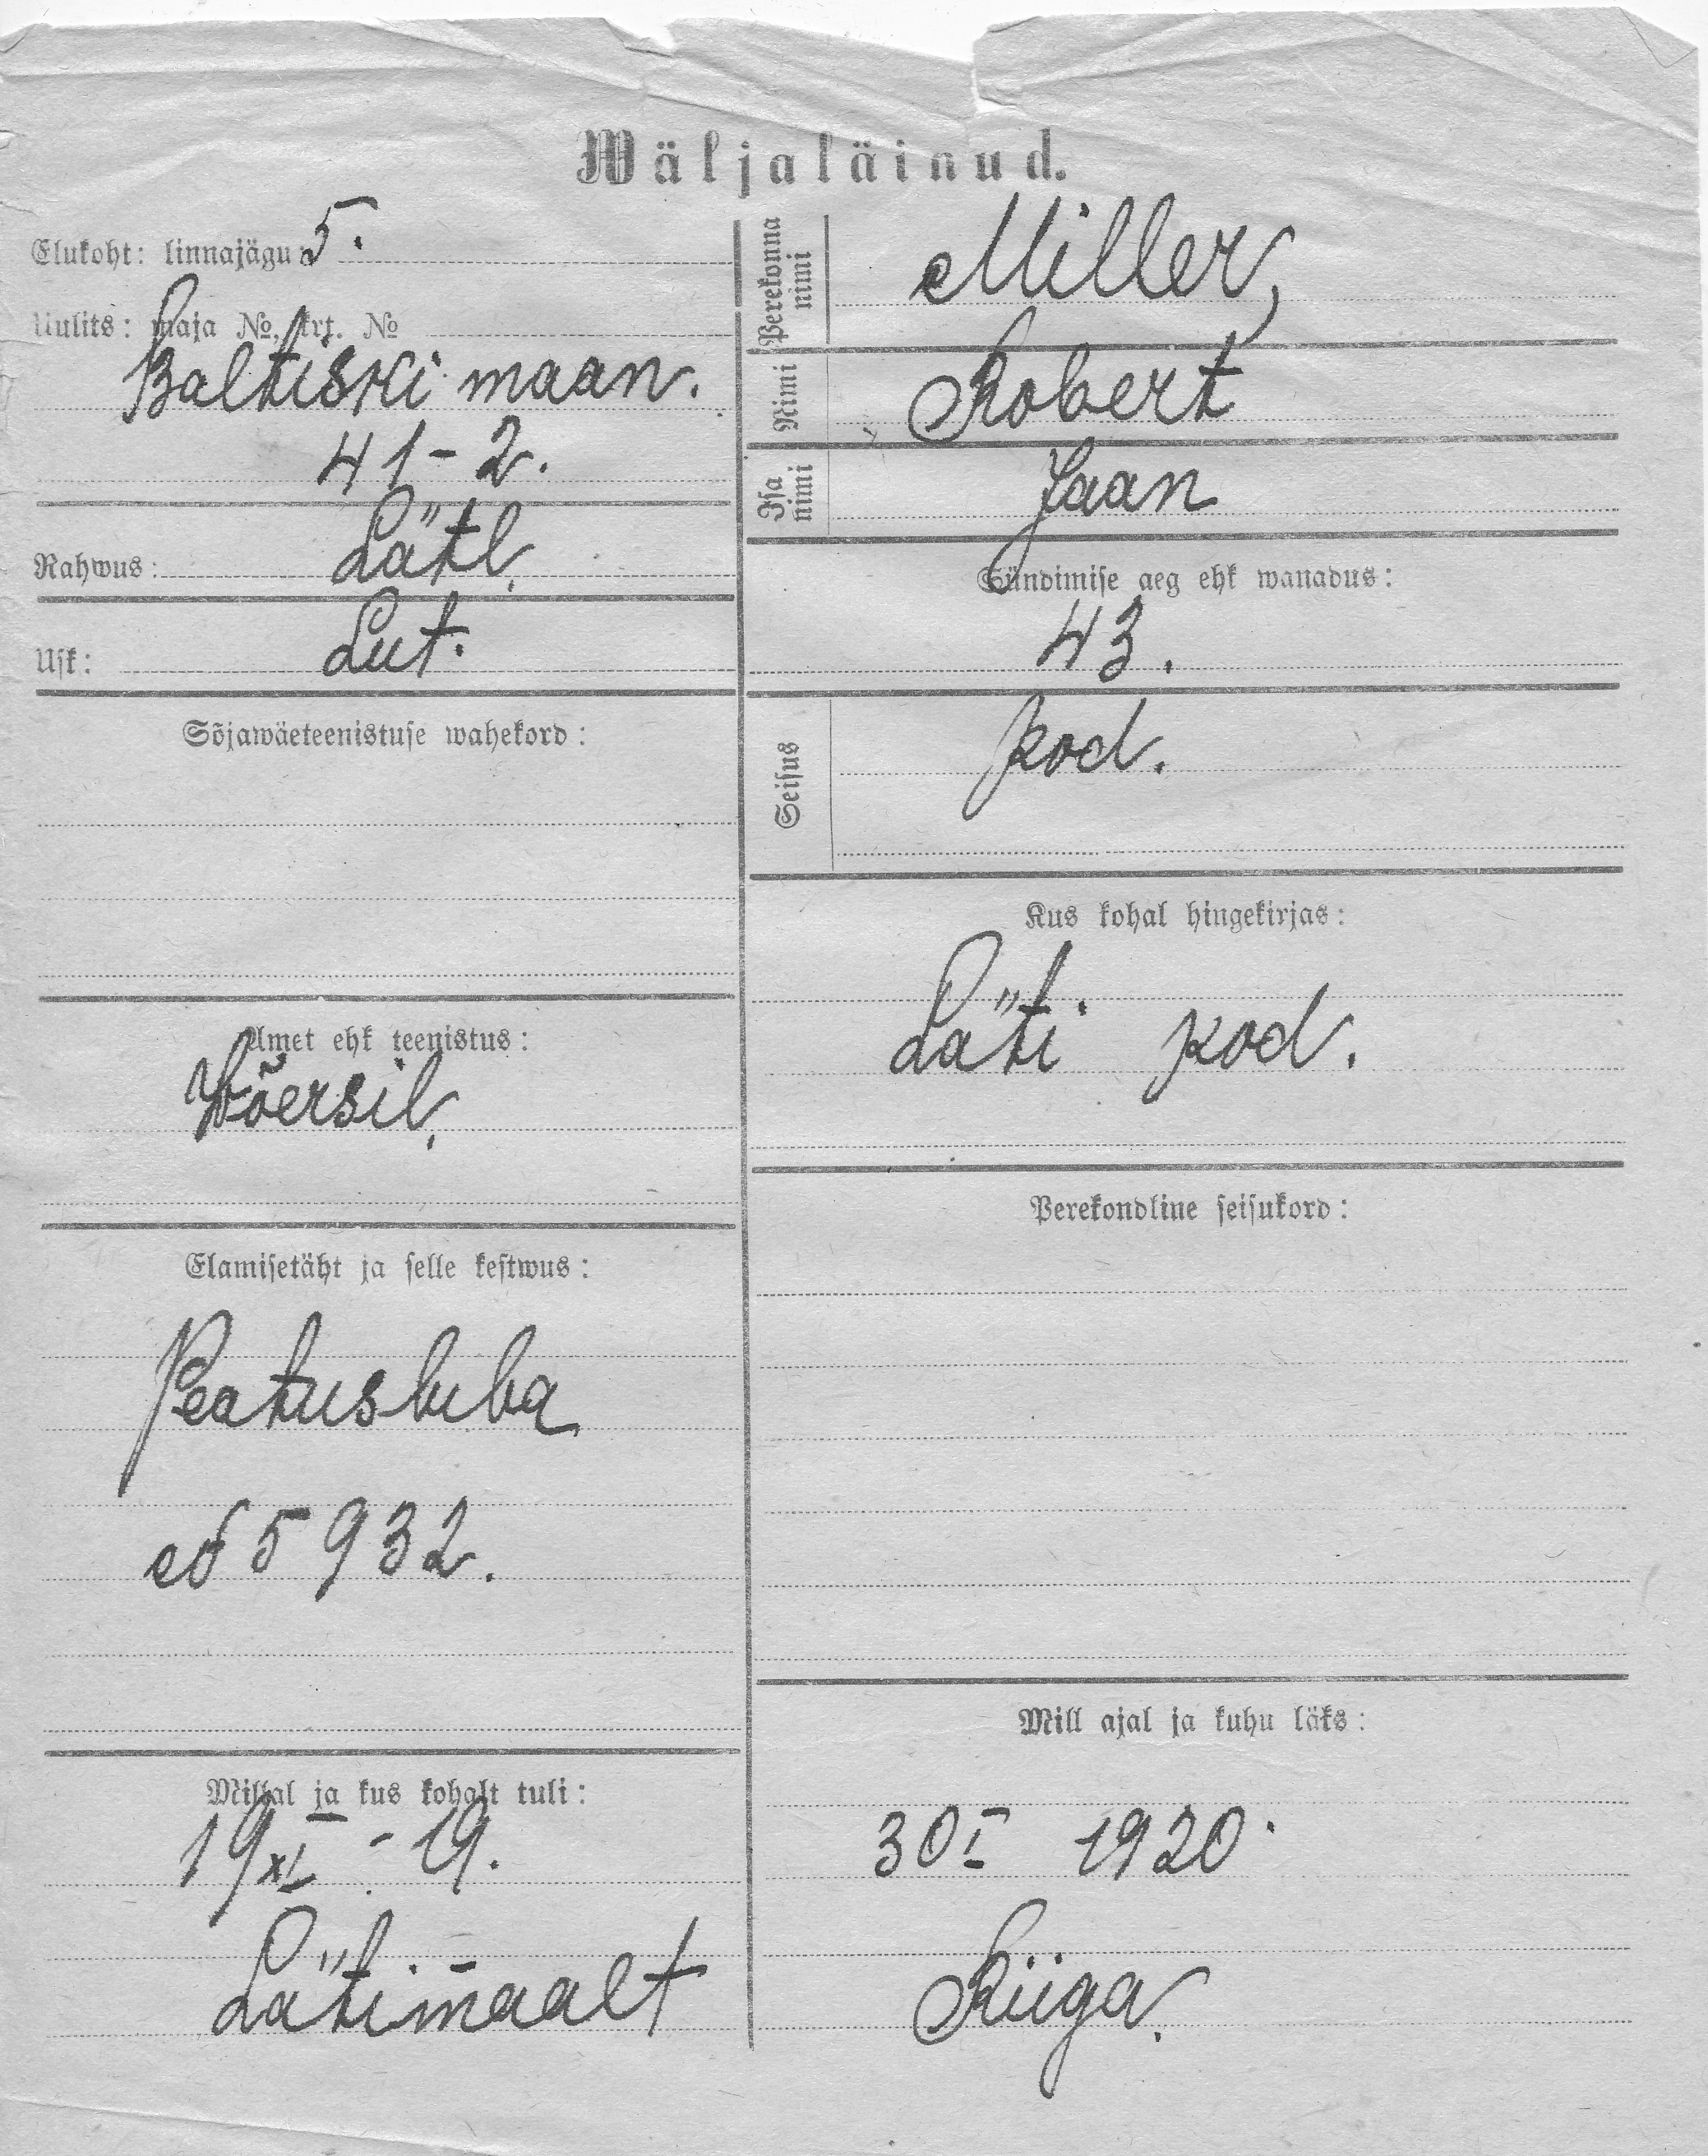 Wäljaläinud.
Elukoht: linnajägu: 5.
Uulits: maja №, krt. №
Baltiski maan.
41-2.
Rahwus: Lätl.
Usk: Lut.
Sõjawäeteenistuse wahekord:
Amet ehk teenistus:
Wõersil.
Elamisetäht ja selle kestwus:
Peatusluba
№ 5932.
Millal ja kus kohalt tuli:
19 XI - 19.
Lätimaalt
Perekonna nimi Miller,
Nimi Robert
Isa nimi Jaan
Sündimise aeg ehk wanadus:
43.
Seisus kod.
Kus kohal hingekirjas:
Läti kod.
Perekondline seisukord:
Mill ajal ja kuhu läks:
30 I 1920.
Riiga.